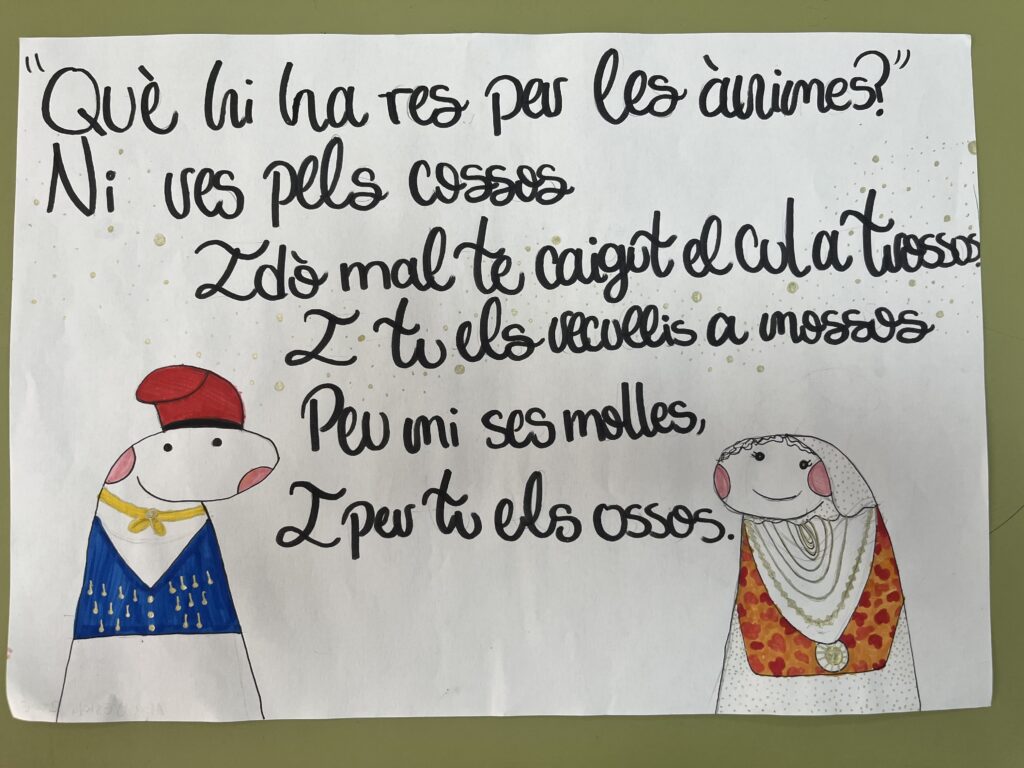 "Què hi ha res per les ànimes?"
Ni res pels cossos
Idò mal te caigut el cul a trossos.
I tu els recullis a mossos
Per mi ses molles,
I per tu els ossos.